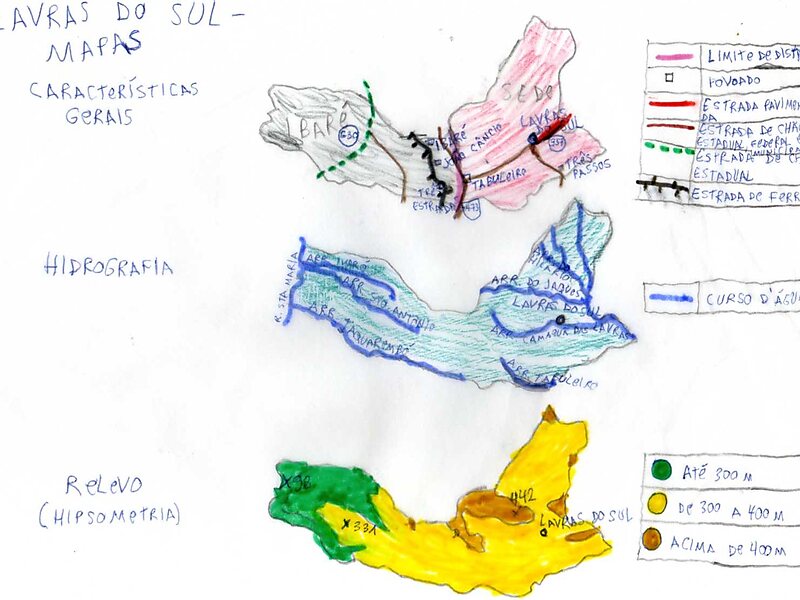 LAVRAS DO SUL -
MAPAS
CARACTERÍSTICAS
GERAIS
IBARÉ
630
IBARÉ
JOÃO CÂNCIO
TRÊS
ESTRADAS
473
TABULEIRO
SEDE
LAVRAS
DO SUL
357
TRÊS
PASSOS
LIMITE DE DISTR
POVOADO
ESTRADA PAVIM
DA
ESTRADA DE CH
ESTADUAL FEDERAL
MUNICIPA
ESTRADA DE
ESTADUAL
ESTRADA DE FERR
HIDROGRAFIA
R. STA MARIA
ARR IBARÉ
ARR STO ANTONIO
ARR TAQUAREMBÓ
ARR DO
HILÁRIO
ARR DO JAQUES
LAVRAS DO SUL
ARR CAMAQUÃ DAS LAVRAS
ARR TABULEIRO
CURSO D'ÁGUA
RELEVO
(HIPSOMETRIA)
X98
X331
442
LAVRAS DO SUL
ATÉ 300 M
DE 300 A 400 M
ACIMA DE 400M